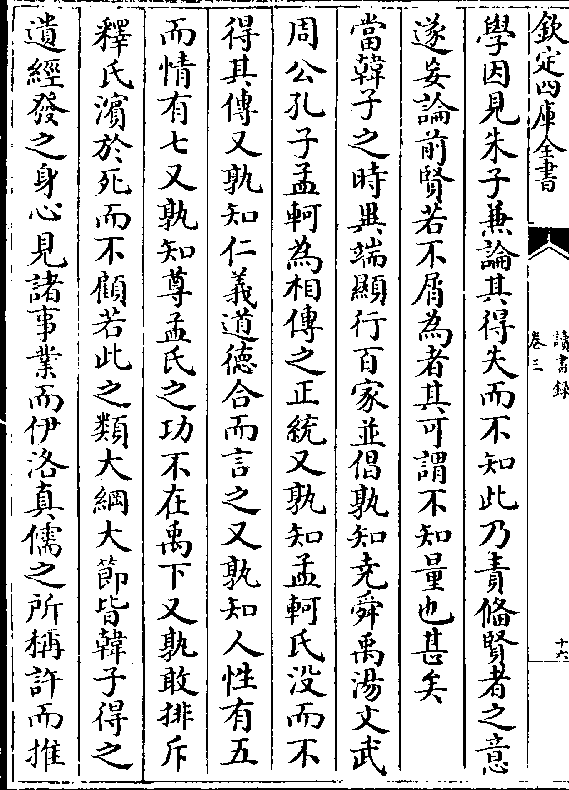 欽定四庫全書
讀書錄
卷三
十六
學因見朱子兼論其得失而不知此乃責備賢者之意
遂妄論前賢若不屑為者其可謂不知量也甚矣
當韓子之時異端顯行百家並倡孰知堯舜禹湯文武
周公孔子孟軻為相傳之正統又孰知孟軻氏没而不
得其傳又孰知仁義道德合而言之又孰知人性有五
而情有七又孰知尊孟氏之功不在禹下又孰敢排斥
釋氏濵於死而不顧若此之類大綱大節皆韓子得之
遺經發之身心見諸事業而伊洛真儒之所稱許而推